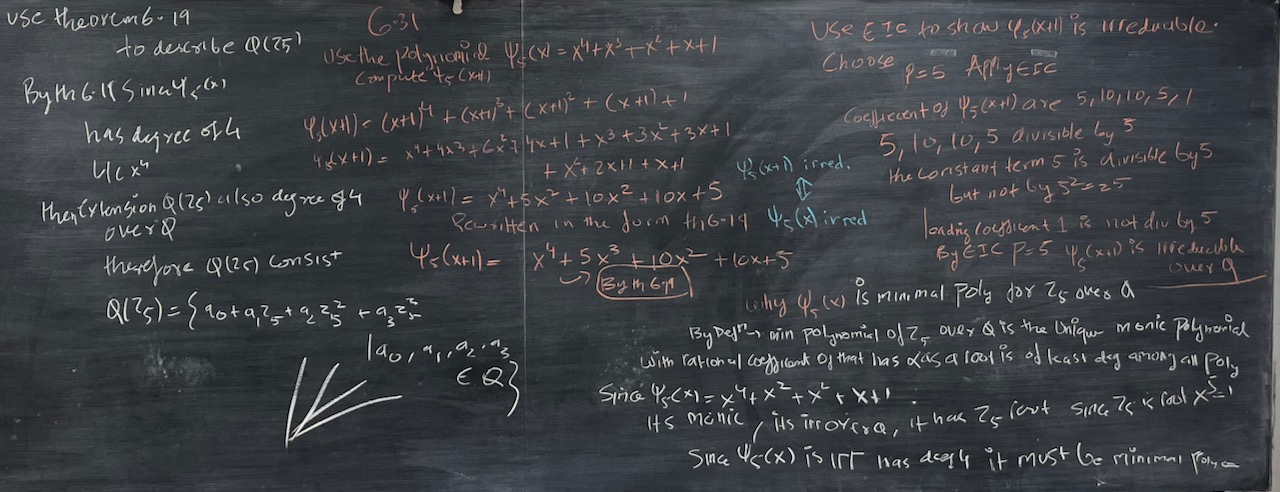 Use theorem 6.19
to describe Q(ζ5)
By th 6.19 Since Ψ5(x)
has degree of 4
x⁴
then Extension Q(ζ5) also degree of 4
over Q
therefore Q(ζ5) consist
Q(ζ5) = {a0 + a1ζ5 + a2ζ5² + a3ζ5³
| a0, a1, a2, a3
∈ Q}
6.31
Use the polynomial Ψ5(x) = x⁴+x³+x²+x+1
Compute Ψ5(x+1)
Ψ5(x+1) = (x+1)⁴ + (x+1)³ + (x+1)² + (x+1) + 1
Ψ5(x+1) = x⁴+4x³+6x²+4x+1 + x³+3x²+3x+1
+ x²+2x+1 + x+1
Ψ5(x+1) = x⁴+5x²+10x²+10x+5
Rewritten in the form th 6.19
Ψ5(x+1) = x⁴+5x³+10x²+10x+5
By th 6.19
Ψ5(x+1) irred.
⇕
Ψ5(x) irred
Use EIC to show Ψ5(x+1) is irreducable.
Choose p=5 Apply EIC
Coefficent of Ψ5(x+1) are 5,10,10,5,1
5,10,10,5 divisible by 5
the constant term 5 is divisible by 5
but not by 5²=25
leading coefficient 1 is not div by 5
By EIC p=5 Ψ5(x+1) is irreducable
over Q
Why Ψ5(x) is minimal poly for ζ5 over Q
By Defⁿ → min polynomial of ζ5 over Q is the Unique monic polynomial
with rational coefficient of that has α as a root is of least deg among all poly
Since Ψ5(x) = x⁴+x²+x²+x+1.
its monic, its irr over Q, it has ζ5 root since ζ5 is root x⁵=1
Since Ψ5(x) is irr has deg 4 it must be minimal poly